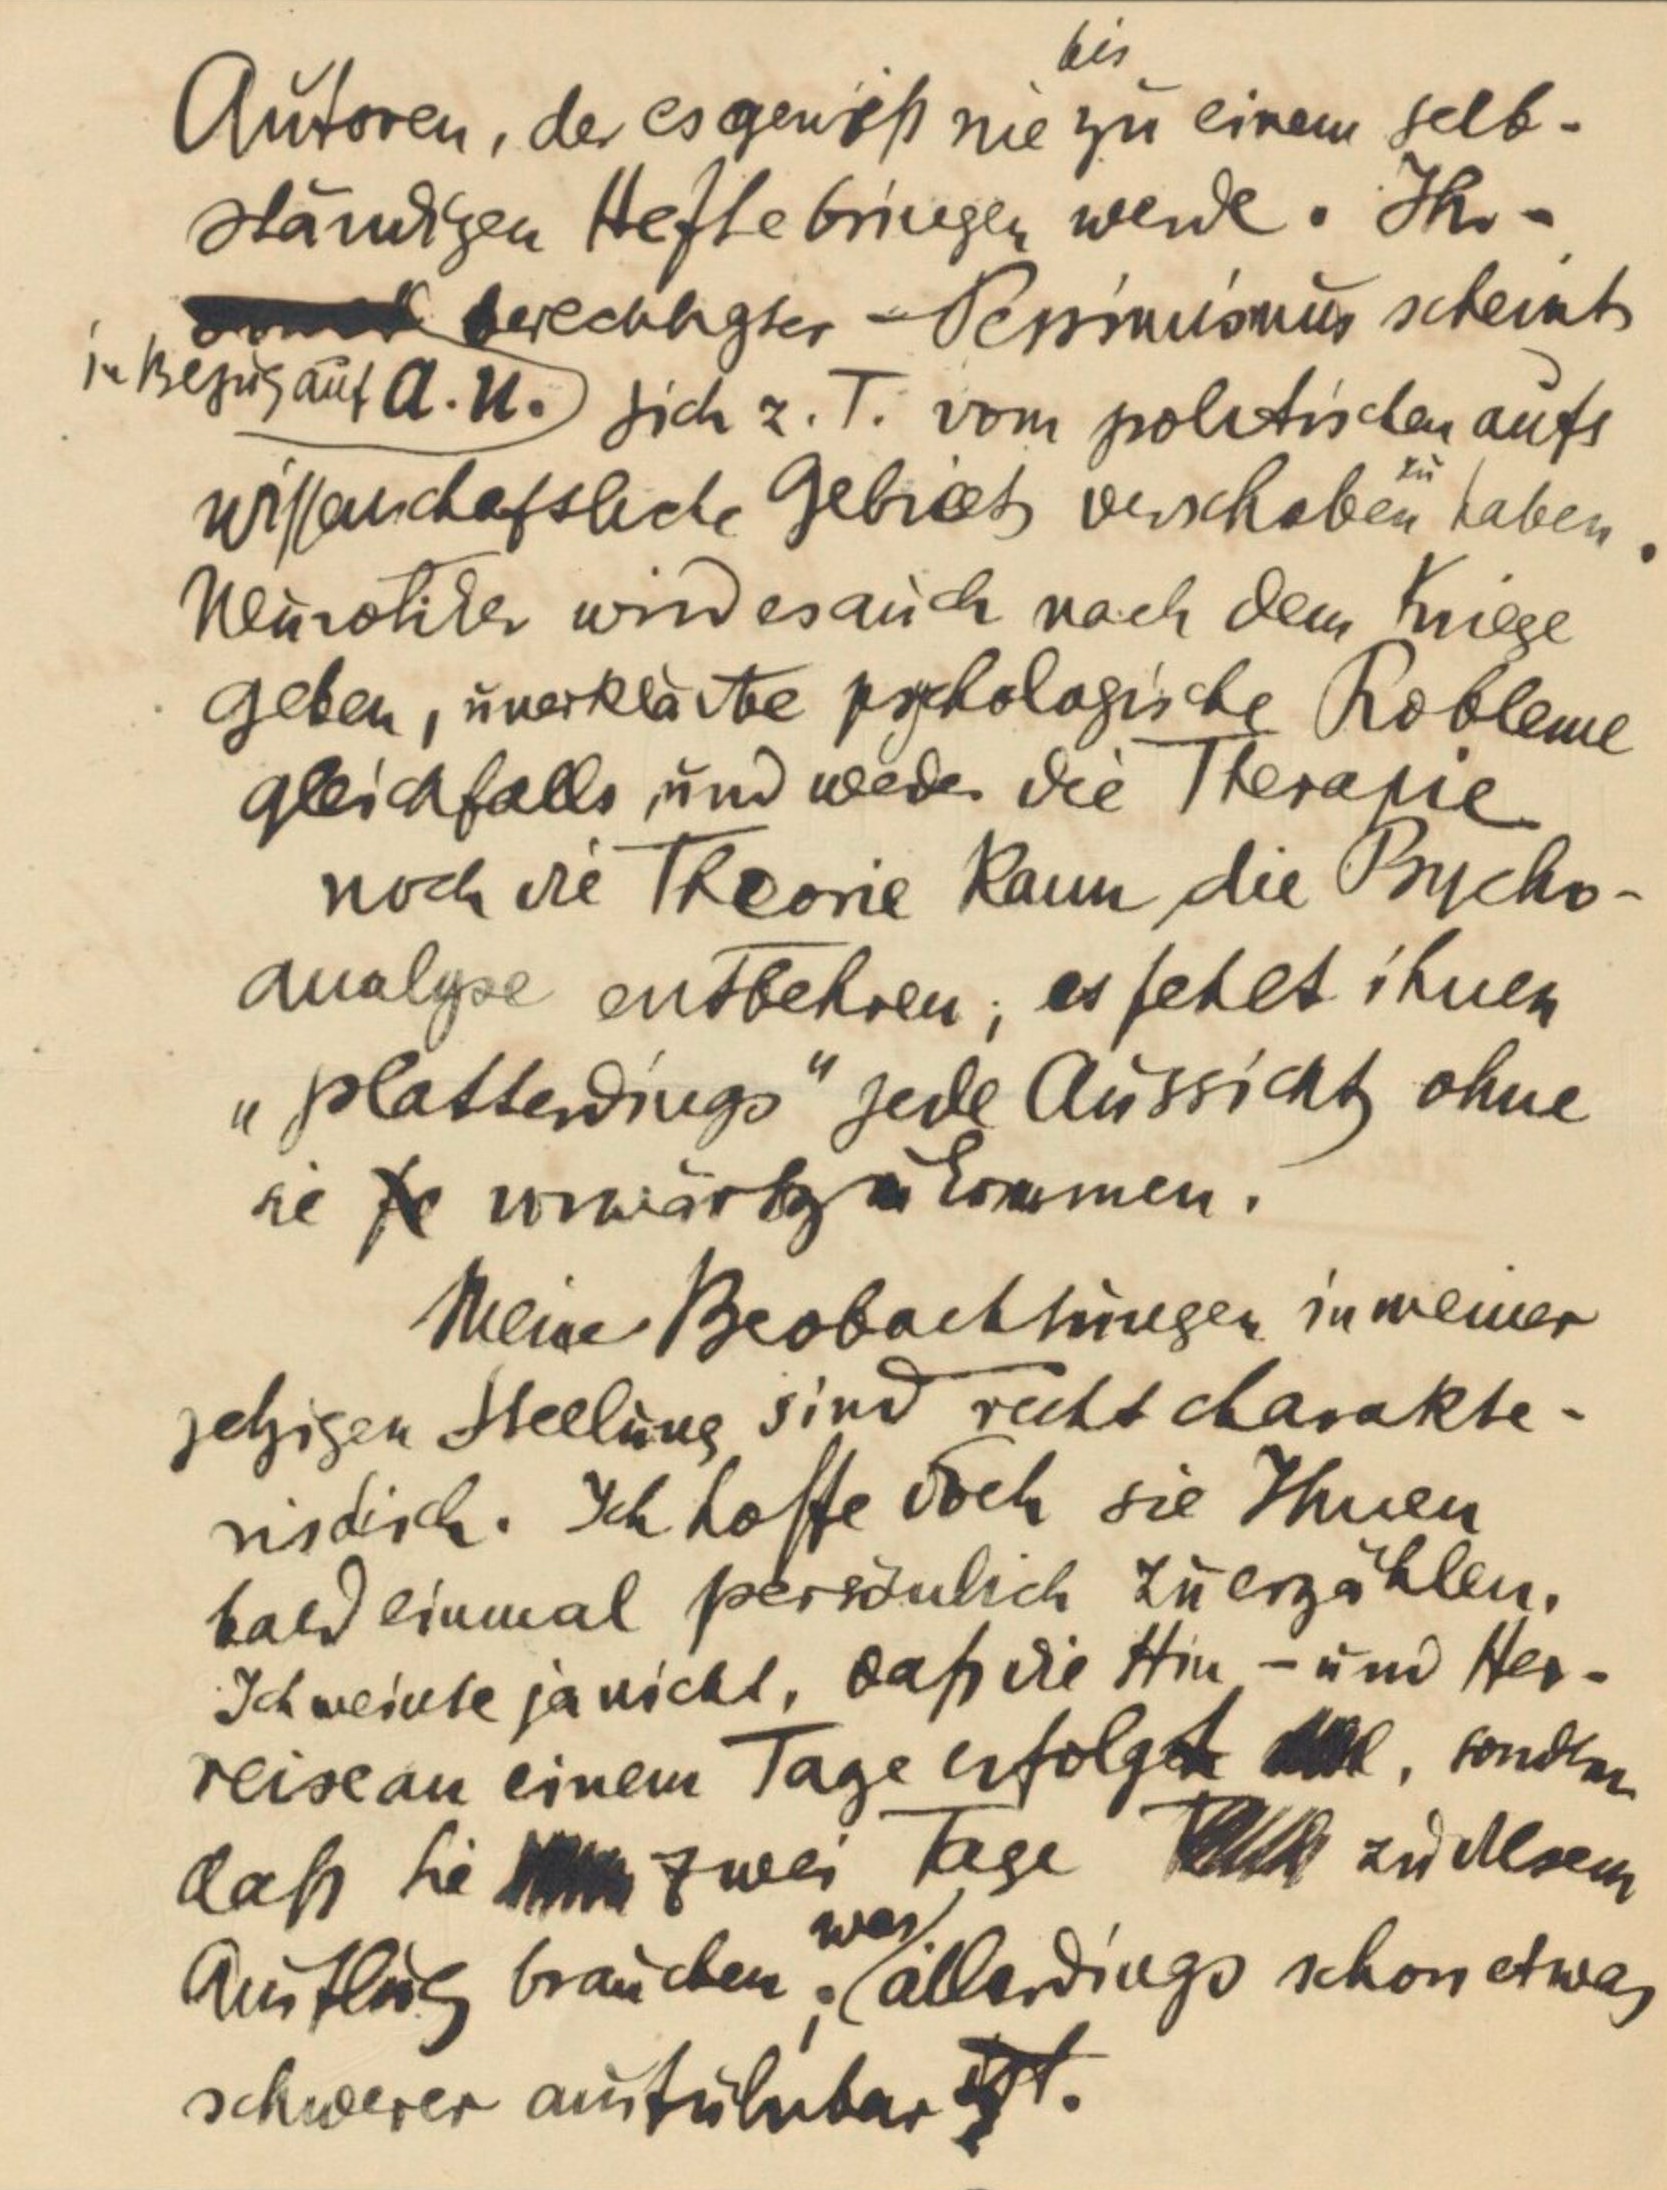 bis
Autoren, der es gewiß nie zu einem selb-
ständigen Hefte bringen werde. Ihr -
berechtigter - Pessimismus scheint
in Bezug auf A. U. sich z. T. vom politischen aufs
wissenschaftliche Gebiet verschoben zu haben.
Neurotiker wird es auch nach dem Kriege
geben, unerklärte psychologische Probleme
gleichfalls, und weder die Therapie
noch die Theorie kann die Psycho-
analyse entbehren; es fehlt ihnen
„platterdings“ jede Aussicht ohne
sie vorwärtszukommen.
Meine Beobachtungen in meiner
jetzigen Stellung sind recht charakte-
ristisch. Ich hoffe doch sie Ihnen
bald einmal persönlich zu erzählen.
Ich meinte ja nicht, daß die Hin - und Her-
reise an einem Tage erfolgt, sondern
daß Sie zwei Tage zu diesem
Ausflug brauchen; was allerdings schon etwas
schwerer ausführbar ist.